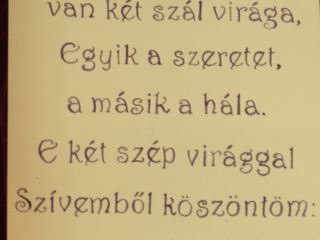 van két szál virága,
Egyik a szeretet,
a másik a hála.
E két szép virággal
Szívemből köszöntöm: